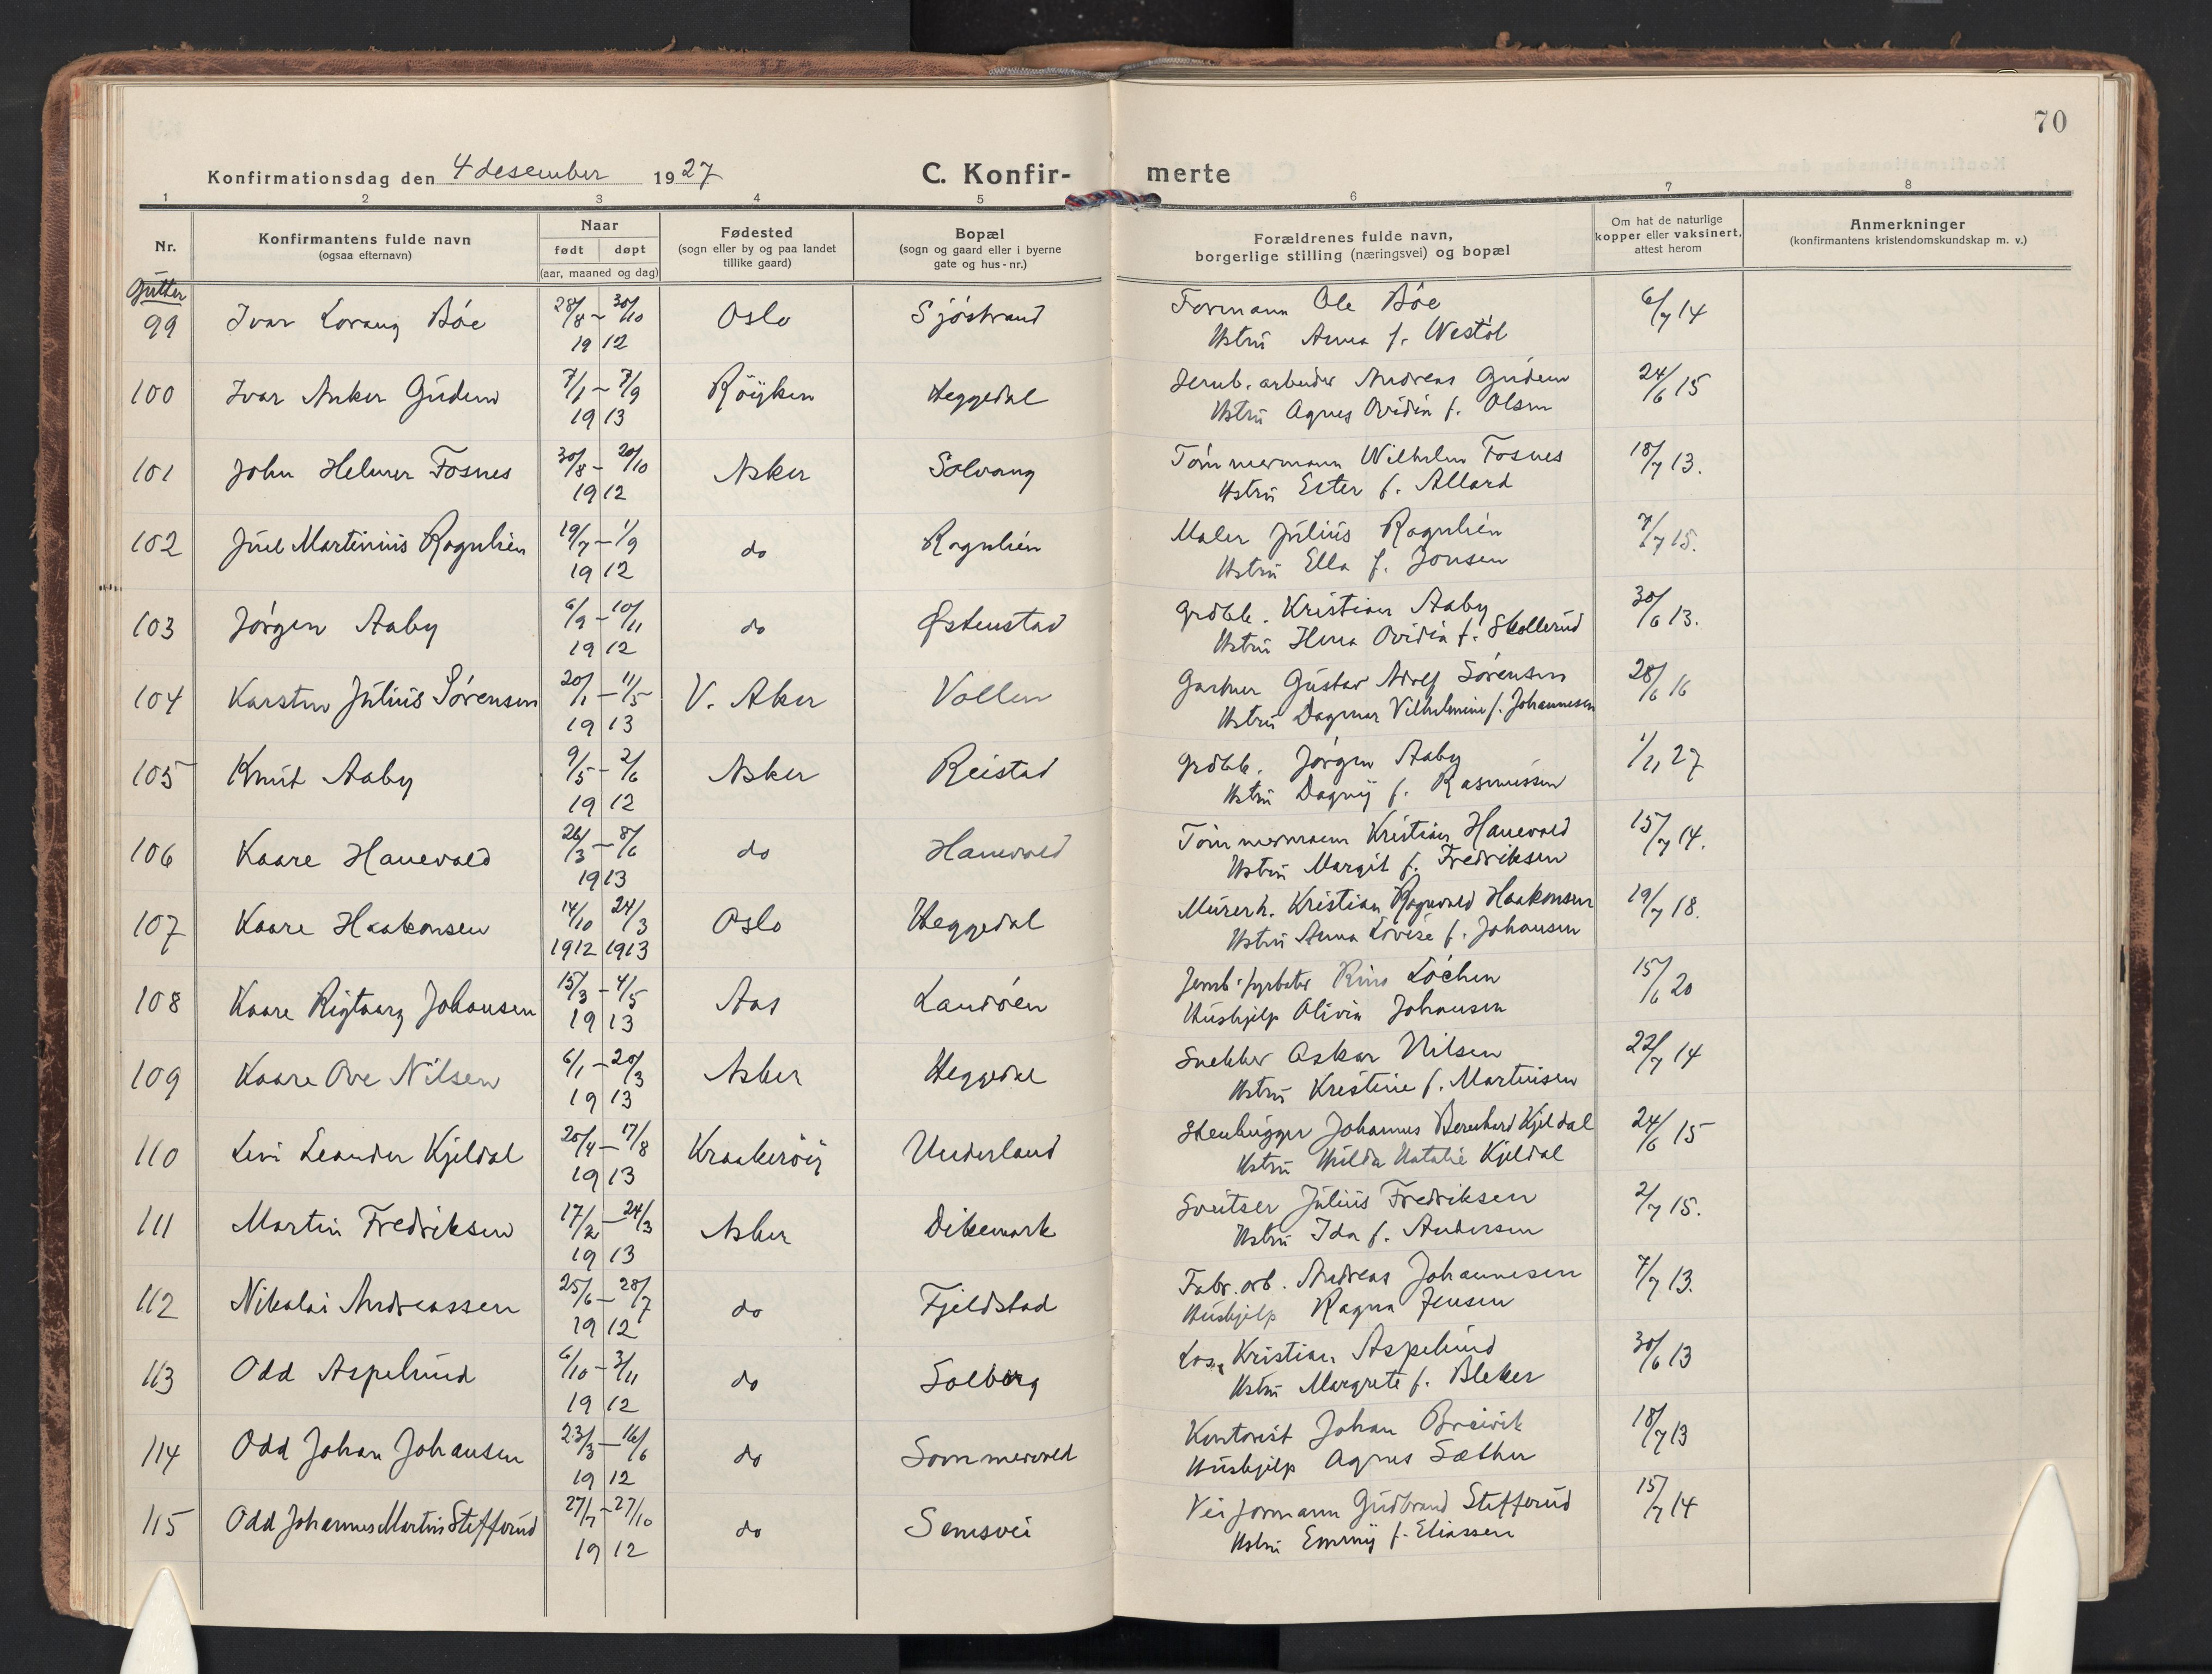 70
Konfirmationsdag den 4 desember 1927
C. Konfir- merte
1 2 3 4 5 6 7 8
Nr.
Konfirmantens fulde navn
(ogsaa efternavn)
Naar
født døpt
(aar, maaned og dag)
Fødested
(sogn eller by og paa landet
tillike gaard)
Bopæl
(sogn og gaard eller i byerne
gate og hus-nr.)
Forældrenes fulde navn,
borgerlige stilling (næringsvei) og bopæl
Om hat de naturlige
kopper eller vaksinert,
attest herom
Anmerkninger
(konfirmantens kristendomskundskap m. v.)
Gutter
99 Ivar Lorang Bøe 28/8 - 30/10 Oslo Sjøstrand Formann Ole Bøe 6/7 14
19 12 Hstru Anna f. Westøl
100 Ivar Anker Gudem 7/1 - 7/9 Røyken Heggedal Jernb. arbeider Andreas Gudem 24/6 15
19 13 Hstru Agnes Ovidia f. Olsen
101 John Helmer Fosnes 30/8 - 20/10 Asker Solvang Tømmermann Wilhelm Fosnes 18/7 13.
19 12 Hstru Ester f. Allard
102 Juel Martinius Rognlien 19/7 - 1/9 do Rognlien Maler Julius Rognlien 7/7 15.
19 12 Hstru Ella f. Jonsen
103 Jørgen Aaby 6/9 - 10/11 do Østenstad Grdbb. Kristian Aaby 30/6 13.
19 12 Hstru Ovidia f. Skollerud
104 Karsten Julius Sørensen 20/1 - 11/5 V. Aker Vollen Gartner Gustav Adolf Sørensen 28/6 16
19 13 Hstru Dagmar Vilhelmine f. Johannesen
105 Knut Aaby 9/5 - 2/6 Asker Reistad Grdbb. Jørgen Aaby 1/11 27
19 12 Hstru Dagny f. Rasmussen
106 Kaare Hanevold 26/3 - 8/6 do Hanevold Tømmermann Kristian Hanevold 15/7 14.
19 13 Hstru Margit f. Fredriksen
107 Kaare Haakonsen 14/10 24/3 Oslo Heggedal Murerh. Kristian Rognvald Haakonsen 19/7 18.
1912 1913 Hstru Anna Lovise f. Johansen
108 Kaare Rigtaarg Johansen 15/3 - 4/5 Aas Landøen Jernb. fyrbøter Løchen 15/6 20
19 13 Hushjelp Olivia Johansen
109 Kaare Ove Nilsen 6/1 - 20/3 Asker Heggedal Snekker Oskar Nilsen 22/7 14
19 13 Hstru Kristine f. Martinsen
110 Levi Leander Kjeldal 20/4 - 17/8 Kraakerøy Underland Stenhugger Johannes Bernhard Kjeldal 24/6 15
19 13 Hstru Hulda Natalie Kjeldal
111 Martin Fredriksen 17/2 - 24/3 Asker Dikemark Sveitser Julius Fredriksen 2/7 15.
19 13 Hstru Ida f. Andersen
112 Nikolai Andreassen 25/6 - 28/7 do Fjeldstad Fabr. arb. Andreas Johannesen 7/7 13.
19 12 Hushjelp Ragna Jensen
113 Odd Aspelund 6/10 - 3/11 do Solberg Kristian Aspelund 30/6 13
19 12 Hstru Margrete f. Bleker
114 Odd Johan Johansen 23/3 - 16/6 do Sommervold Kontorist Johan Breivik 18/7 13
19 12 Hushjelp Agnes Sæther
115 Odd Johannes Martin Stefferud 27/7 - 27/10 do Semsvei Veiformann Gudbrand Stefferud 15/7 14
19 12 Hstru Emmy f. Eliassen